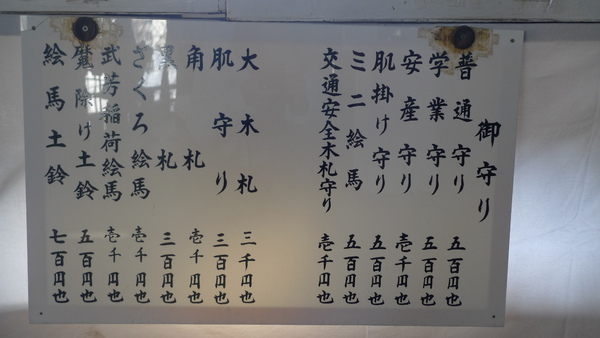 御守り
普通守り 五百円也
学業守り 五百円也
安産守り 壱千円也
肌掛け守り 五百円也
三二絵馬 五百円也
交通安全木札守り 壱千円也
大木札 三千円也
肌守り 三百円也
角札 壱千円也
札 三百円也
ざくろ絵馬 壱千円也
武芳稲荷絵馬 壱千円也
除け土鈴 五百円也
絵馬土鈴 七百円也